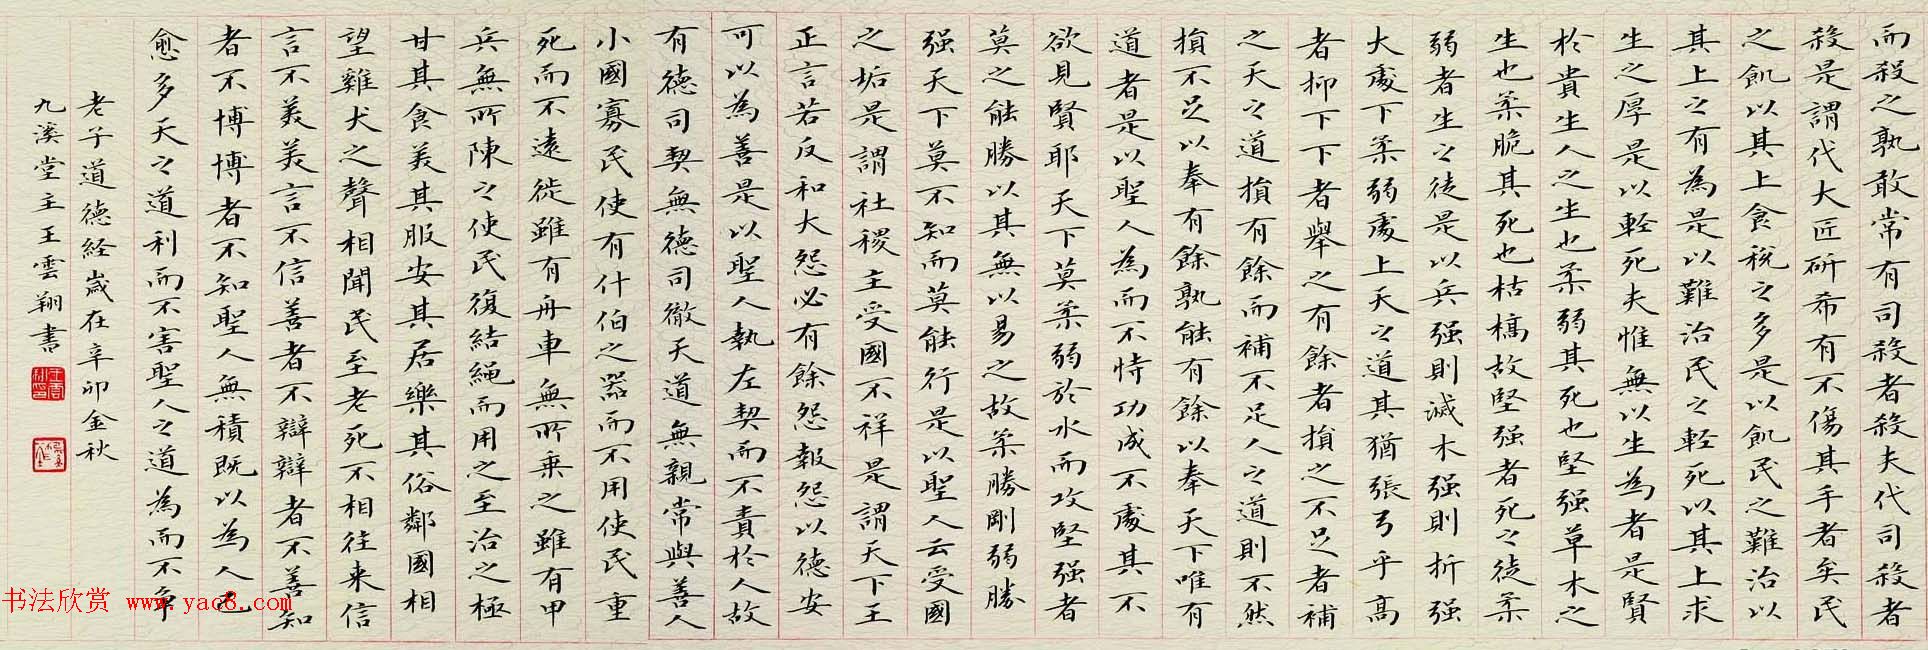 而殺之孰敢常有司殺者殺夫代司殺者
殺是謂代大匠斫希有不傷其手者矣民
之飢以其上食稅之多是以飢民之難治以
其上之有為是以難治民之輕死以其上求
生之厚是以輕死夫惟無以生為者是賢
於貴生人之生也柔弱其死也堅强草木之
生也柔脆其死也枯槁故堅强者死之徒柔
弱者生之徒是以兵强則滅木强則折强
大處下柔弱處上天之道其猶張弓乎高
者抑下下者舉之有餘者損之不足者補
之天之道損有餘而補不足人之道則不然
損不足以奉有餘孰能有餘以奉天下唯有
道者是以聖人為而不恃功成不處其不
欲見賢耶天下莫柔弱於水而攻堅强者
莫之能勝以其無以易之故柔勝剛弱勝
强天下莫不知而莫能行是以聖人云受國
之垢是謂社稷主受國不祥是謂天下王
正言若反和大怨必有餘怨報怨以德安
可以為善是以聖人執左契而不責於人故
有德司契無德司徹天道無親常與善人
小國寡民使有什伯之器而不用使民重
死而不遠徙雖有舟車無所乘之雖有甲
兵無所陳之使民復結繩而用之至治之極
甘其食美其服安其居樂其俗鄰國相
望雞犬之聲相聞民至老死不相往来信
言不美美言不信善者不辯辯者不善知
者不博博者不知聖人無積既以為人己
愈多天之道利而不害聖人之道為而不争
老子道德経歲在辛卯金秋
九溪堂主王雲翔書
书法欣赏 www.yac8.com